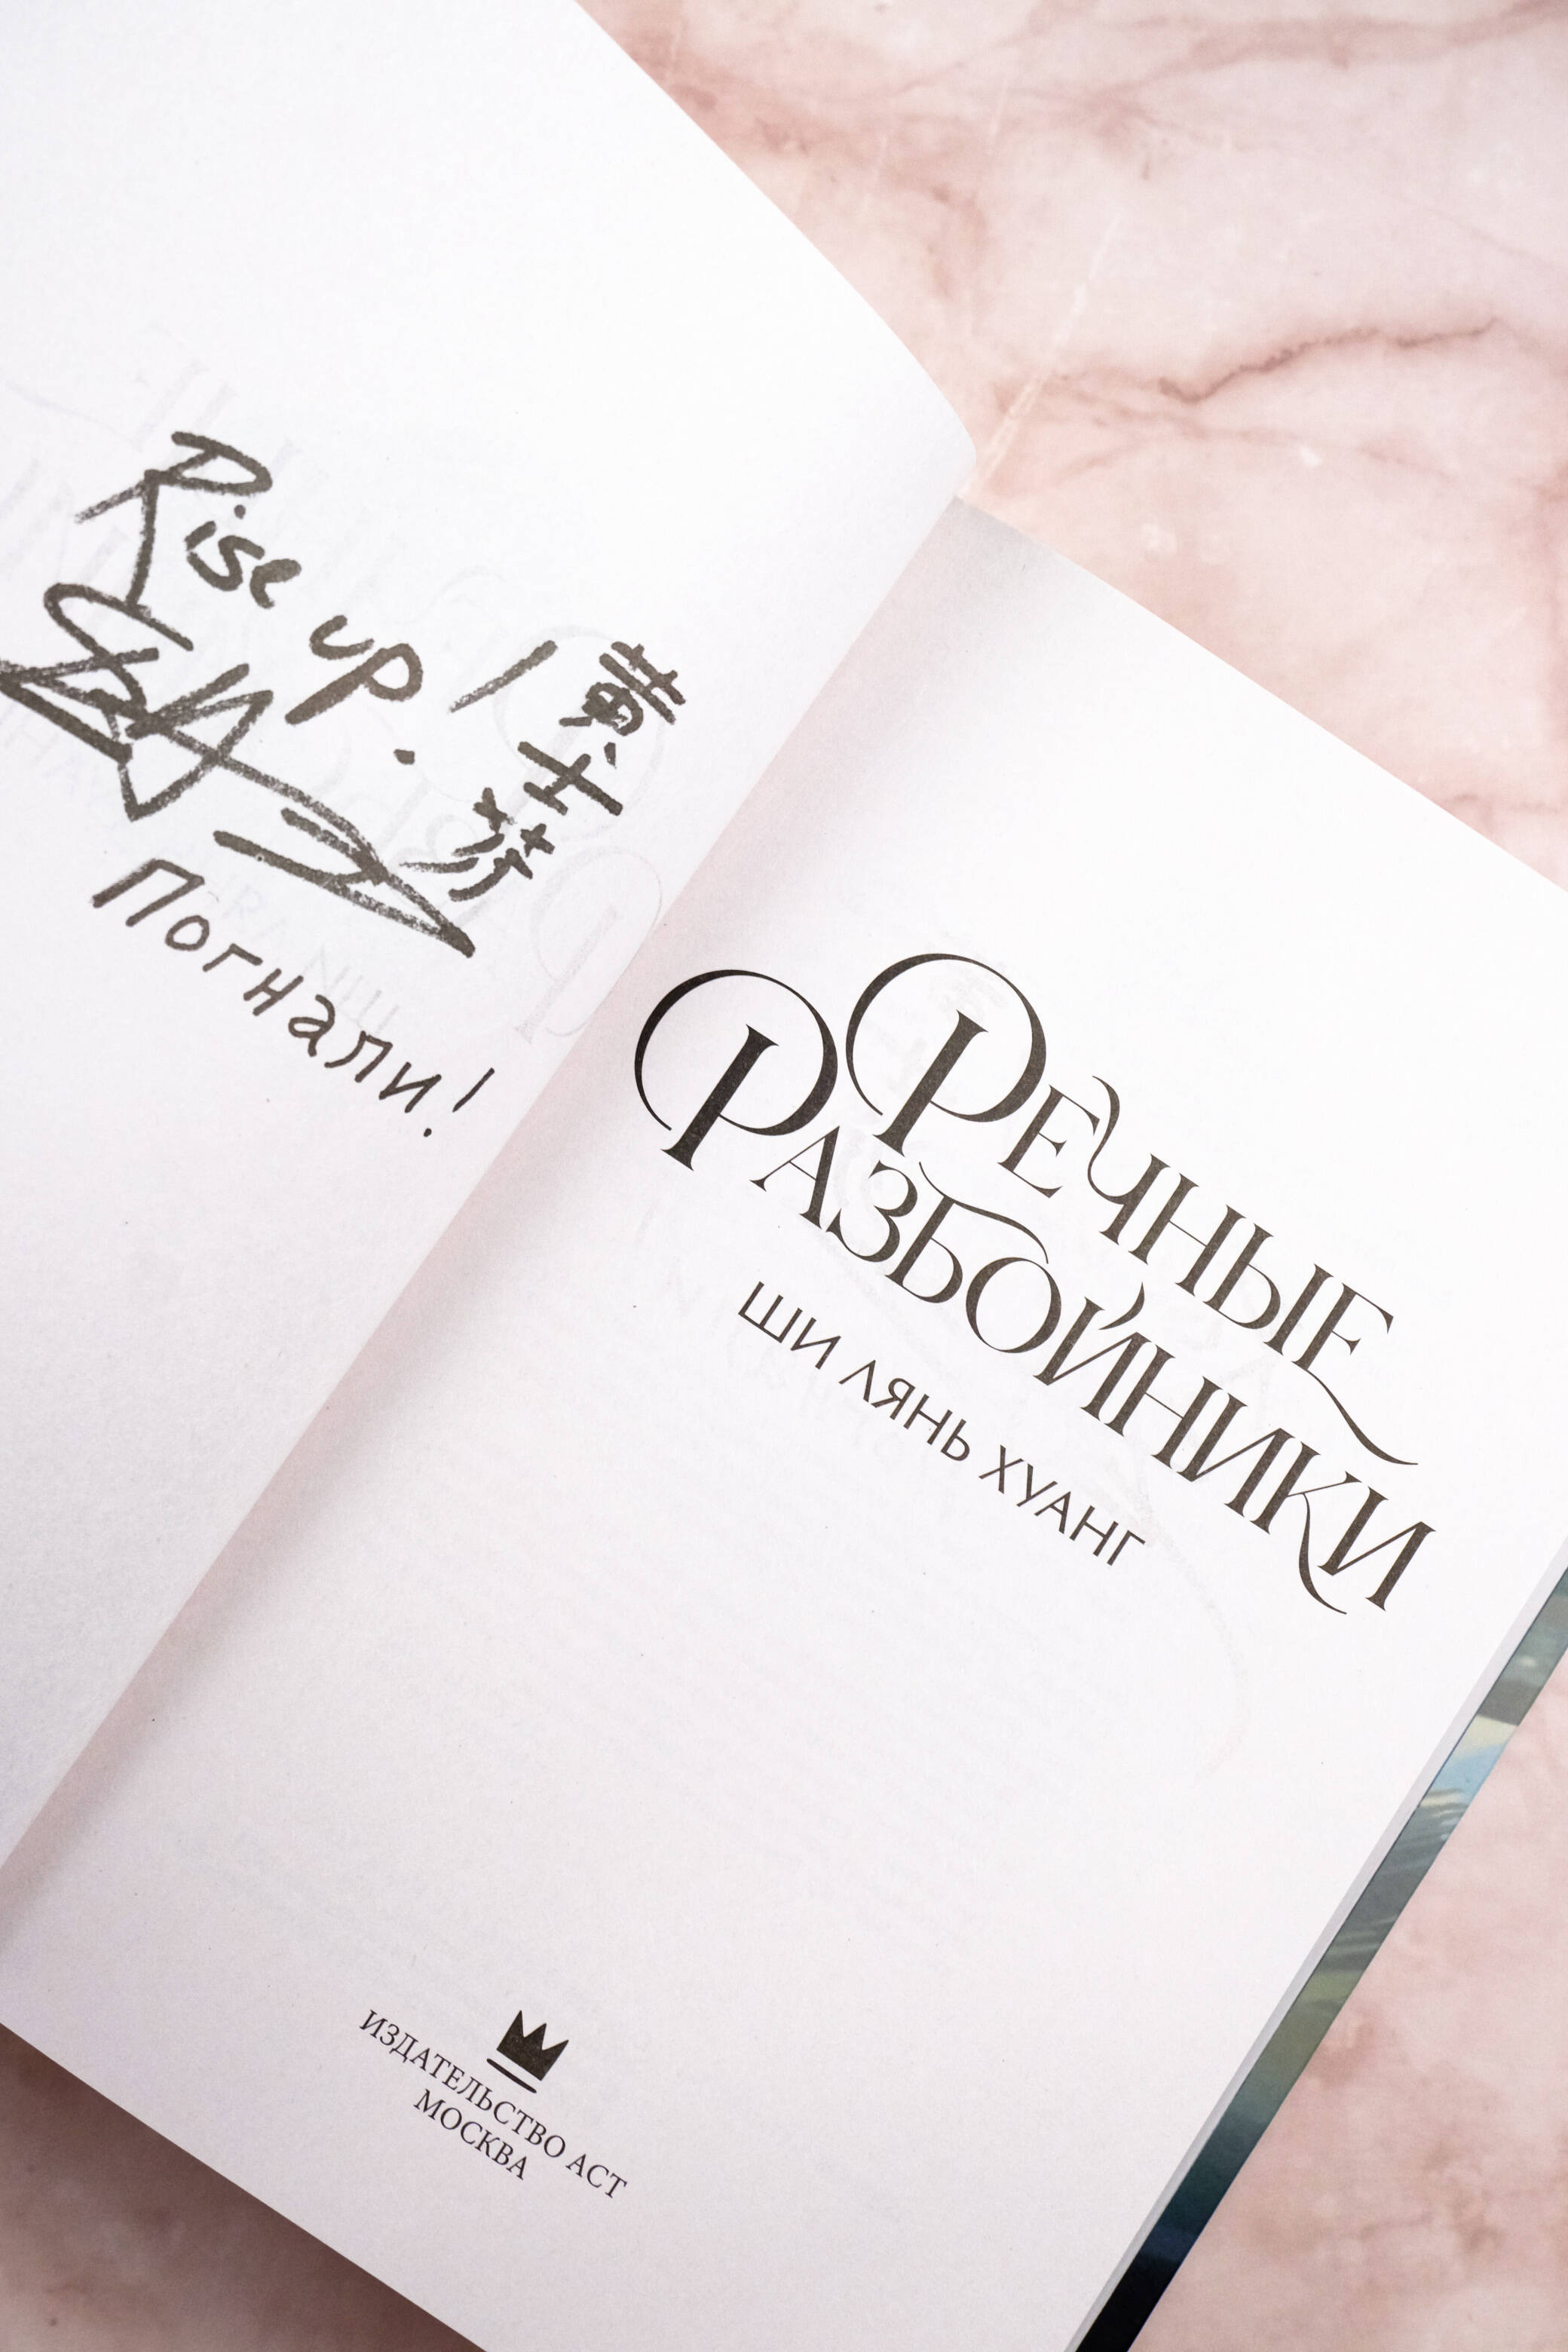 Rise up.
黄士芬
Погнали!
РЕЧНЫЕ
РАЗБОЙНИКИ
ШИ ЛЯНЬ ХУАНГ
ИЗДАТЕЛЬСТВО АСТ
МОСКВА